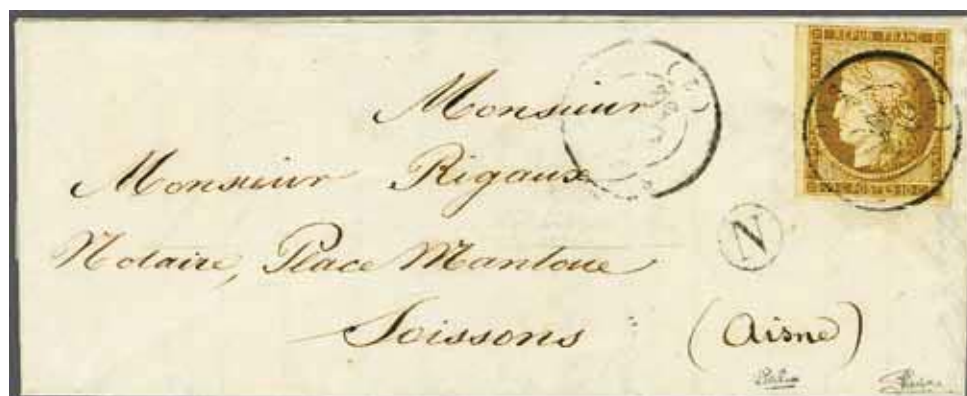 REPUB FRANC
Monsieur
Monsieur Rigaux
N
Notaire, Place Mantoue
Soissons (Aisne)